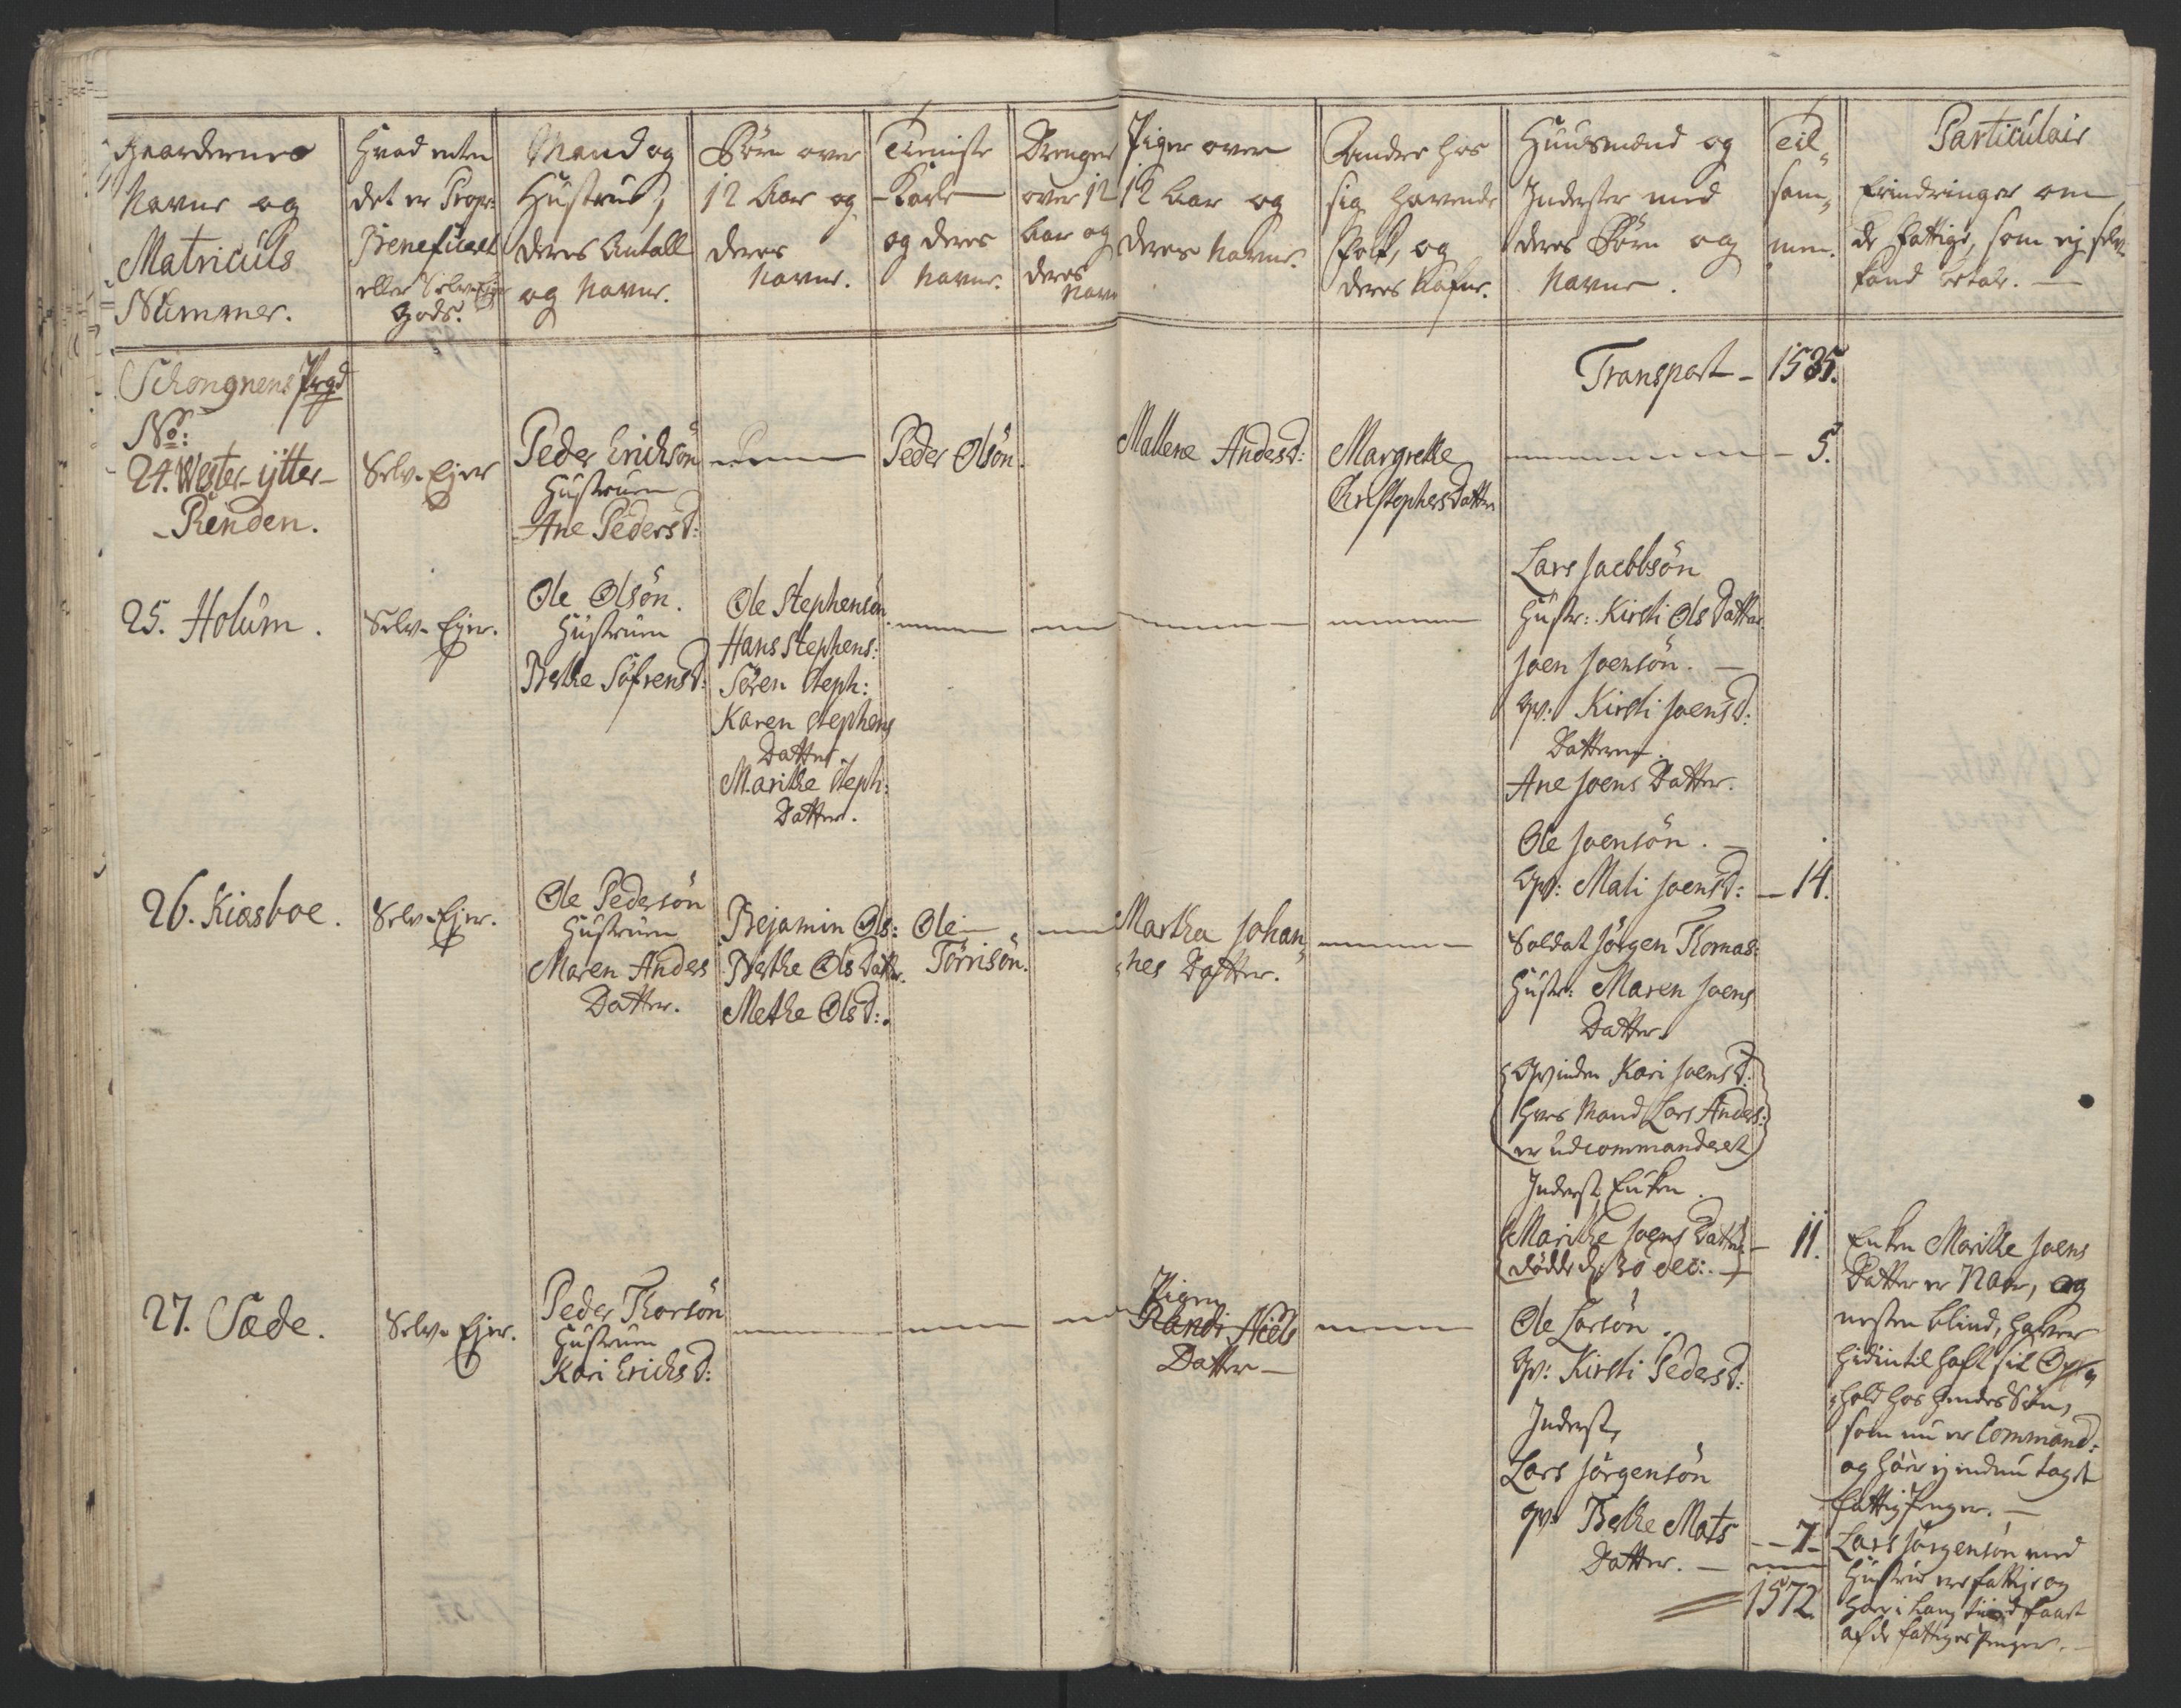 Gaardernes
Navne og
Matriculs
Nummer.
Hvad enten
det er Propr:
Beneficeret
eller Selv-Ejer
Gods.
Mand og
Hustrue,
deres Antall
og Navne.
Børn over
12 Aar og
deres
Navne.
Tieniste
-Karle
og deres
Navne.
Drenger
over 12
Aar og
deres
Navn
Piger over
12 Aar og
deres Navne.
Andre hos
sig havende
Folk, og
deres Nafne.
Huusmænd og
Inderster med
deres Børn og
Navne.
Til„
sam„
men.
Particulair
Erindringer om
de fattige, som ej selv
kand betale. —
Schongnens Prgd
No:
24. Wester-ÿtter-
-Renden.
Selv-Ejer
Peder Erichsön
Hustruen
Ane Pedersd:
Peder Olsön.
Mallene Andersd:
Margrethe
Christophersdatter
Transport - 1535.
- 5.
25. Holum.
Selv-Ejer.
Ole Olsön.
Hustruen
Berthe Söfrensd:
Ole Stephensön.
Hans Stephens:
Sören Steph:
Karen Stephens
Datter.
Marithe Steph:
Datter.
Lars Jacobsön
Hustr: Kirsti Olsdatter
Joen Joensön. —
Qv: Kirsti Joensd:
Datteren.
Ane Joens Datter.
Ole Joensön. —
Qv: Mali Joensd: — 14.
26. Kiæsboe.
Selv-Ejer.
Ole Pedersön
Hustruen
Maren Anders
Datter.
Bejamin Ols:
Berthe Olsdatter.
Methe Olsd:
Ole
Törrisön.
Martha Johan„
„nes Datter.
Soldat Jörgen Thomas:
Hustr: Maren Joens
Datter.
(Qvinden Kari Joensd:
hves Mand Lars Anders:
er udcommanderet)
Inderst Enken.
(Marithe Joens Datter) — 11.
(døde d. 30 Dec: —)
Enken Marithe Joens
Datter er 72 Aar, og
nesten blind, haver
hidintil haft sit Op„
„hold hos hendes Søn,
som nu er Command:
og har ej endnu taget
fattig Penger. —
27. Sæde.
Selv-Ejer.
Peder Thorsön
Hustruen
Kari Erichsd:
Pigen
Randi Niels
Datter —
Ole Larsön.
Qv: Kirsti Pedersd:
Inderst,
Lars Jörgensön
Qv: Berthe Mats
Datter. — -- 7-
1572.
Lars Jørgensön med
Hustrue ere fattige og
har i lang tiid faaet
af de fattiges Penger. —